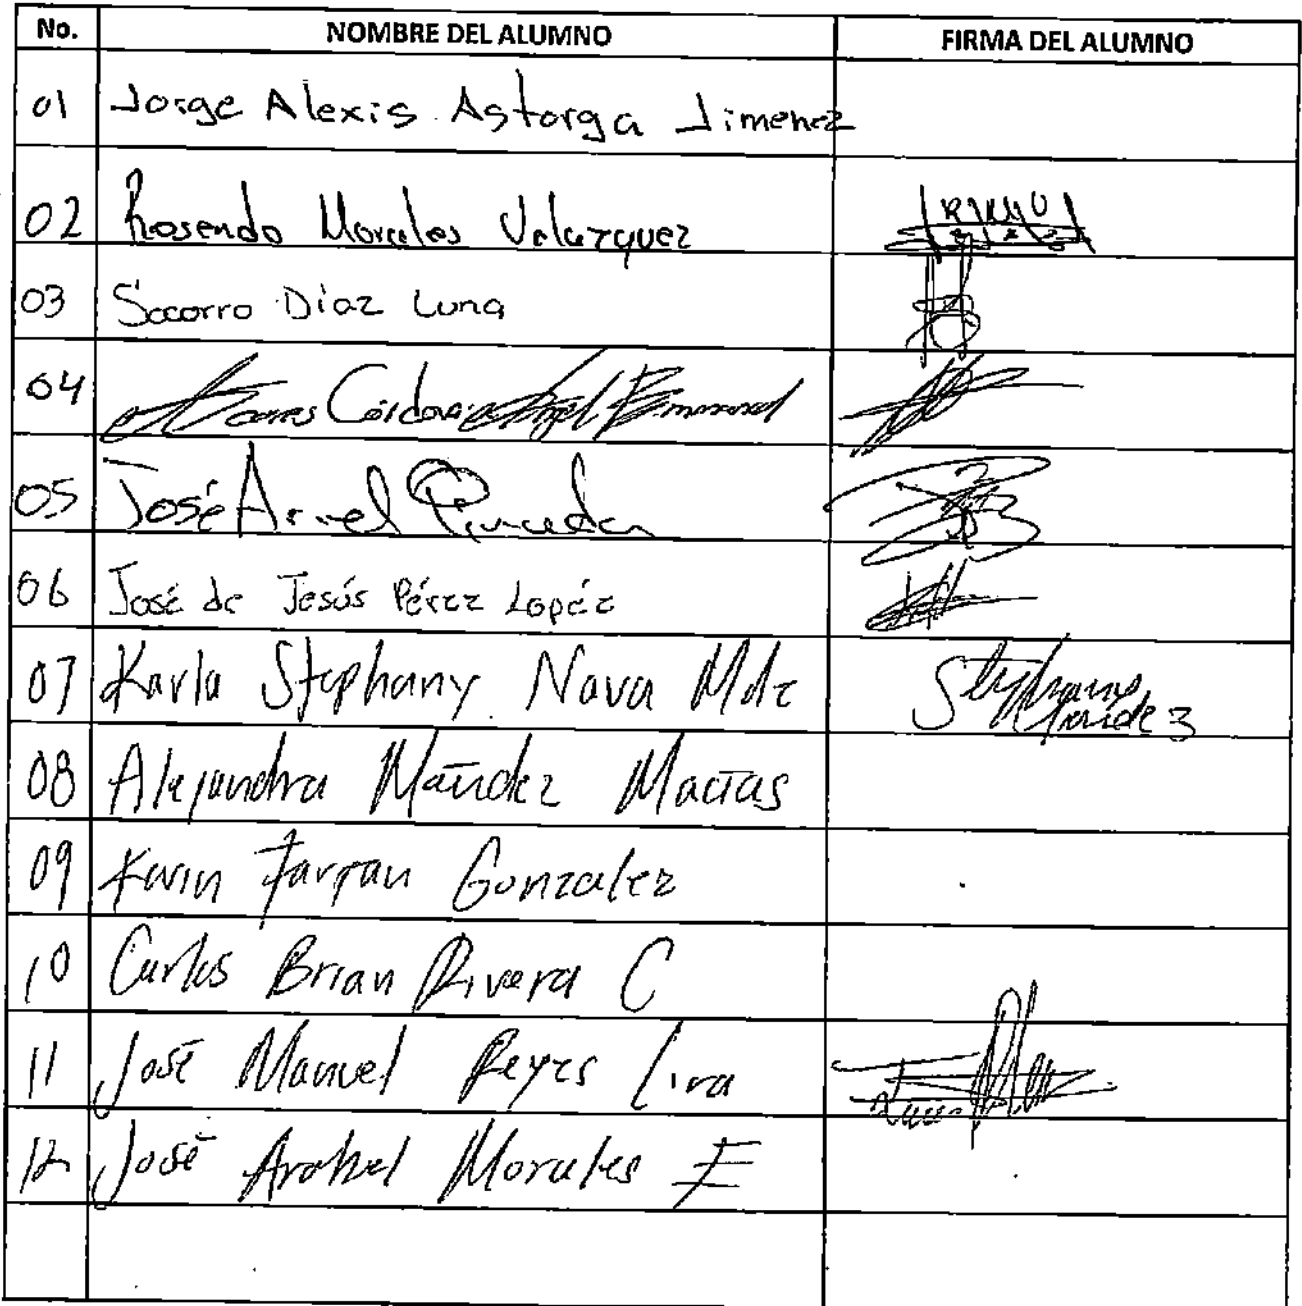 No. NOMBRE DEL ALUMNO FIRMA DEL ALUMNO
01 Jorge Alexis Astorga Jimenez
02 Rosendo Morales Velazquez
03 Socorro Diaz Luna
04 Córdova Angel Emmanuel
05 José Arnel Pineda
06 José de Jesús Pérez Lopéz
07 Karla Stephany Nava Mdz Stephany
08 Alejandra Macías
09 Karin Farfan Gonzalez
10 Carlos Brian Rivera C
11 José Manuel Reyes Lira
12 José Morales E